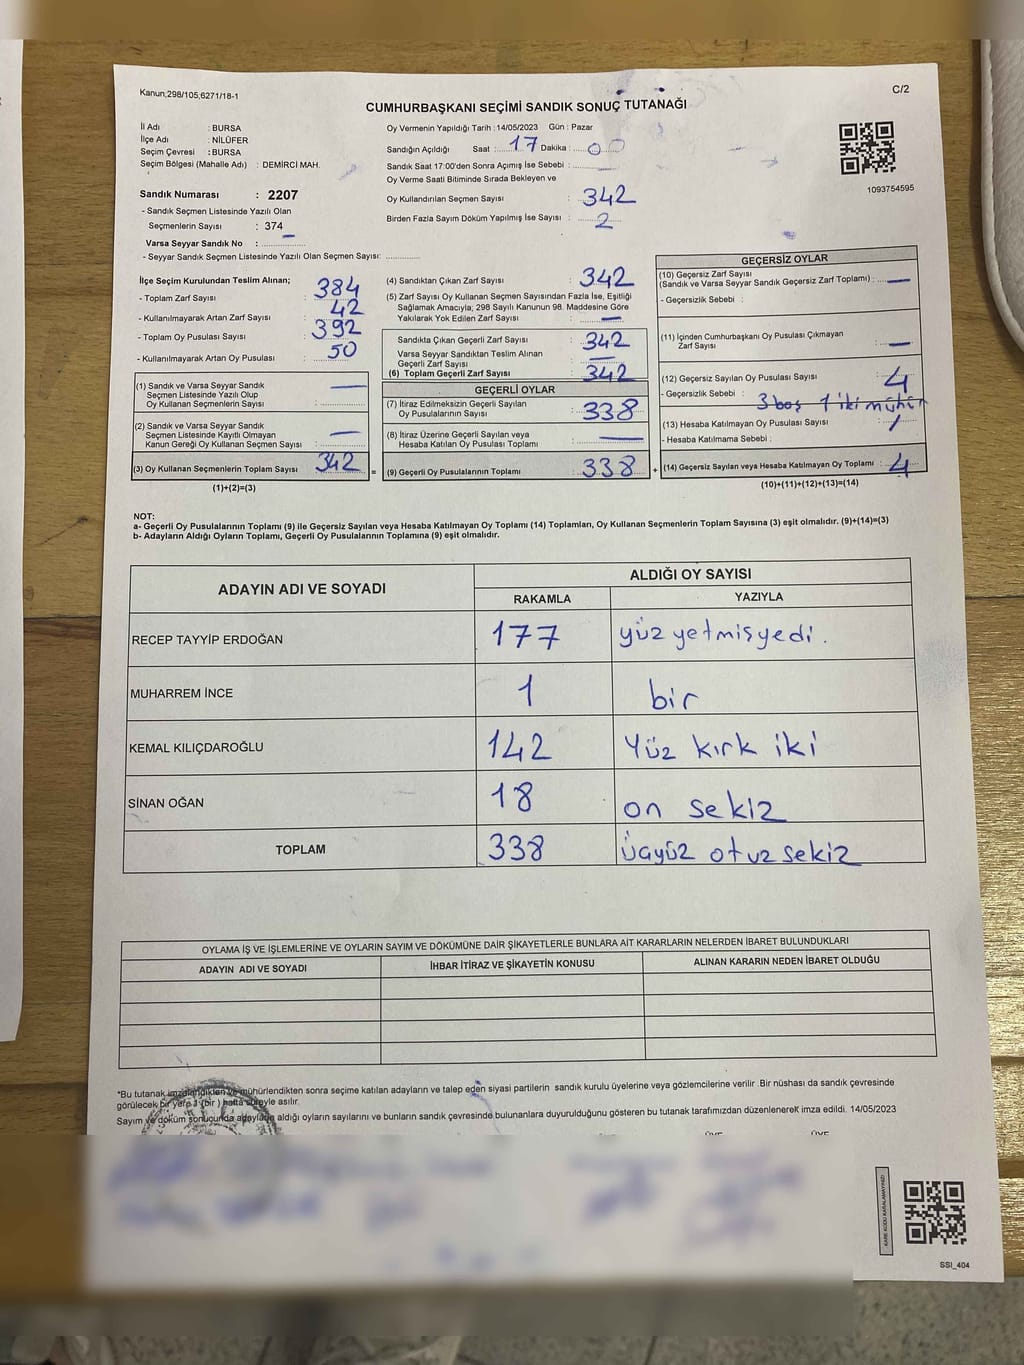 Kanun;298/105;6271/18-1
C/2
CUMHURBAŞKANI SEÇİMİ SANDIK SONUÇ TUTANAĞI
İl Adı : BURSA
İlçe Adı : NİLÜFER
Seçim Çevresi : BURSA
Seçim Bölgesi (Mahalle Adı) : DEMİRCİ MAH.
Sandık Numarası : 2207
- Sandık Seçmen Listesinde Yazılı Olan
Seçmenlerin Sayısı : 374
Varsa Seyyar Sandık No :
- Seyyar Sandık Seçmen Listesinde Yazılı Olan Seçmen Sayısı:
Oy Vermenin Yapıldığı Tarih : 14/05/2023 Gün : Pazar
Sandığın Açıldığı Saat : 17 Dakika : 00
Sandık Saat 17:00'den Sonra Açımış İse Sebebi :
Oy Verme Saati Bitiminde Sırada Bekleyen ve
Oy Kullandırılan Seçmen Sayısı : 342
Birden Fazla Sayım Döküm Yapılmış İse Sayısı : 2
1093754595
İlçe Seçim Kurulundan Teslim Alınan;
- Toplam Zarf Sayısı : 384
- Kullanılmayarak Artan Zarf Sayısı : 42
- Toplam Oy Pusulası Sayısı : 392
- Kullanılmayarak Artan Oy Pusulası : 50
(1) Sandık ve Varsa Seyyar Sandık
Seçmen Listesinde Yazılı Olup
Oy Kullanan Seçmenlerin Sayısı :
(2) Sandık ve Varsa Seyyar Sandık
Seçmen Listesinde Kayıtlı Olmayan
Kanun Gereği Oy Kullanan Seçmen Sayısı :
(3) Oy Kullanan Seçmenlerin Toplam Sayısı : 342 =
(1)+(2)=(3)
(4) Sandıktan Çıkan Zarf Sayısı : 342
(5) Zarf Sayısı Oy Kullanan Seçmen Sayısından Fazla İse, Eşitliği
Sağlamak Amacıyla; 298 Sayılı Kanunun 98. Maddesine Göre
Yakılarak Yok Edilen Zarf Sayısı :
Sandıkta Çıkan Geçerli Zarf Sayısı : 342
Varsa Seyyar Sandıktan Teslim Alınan
Geçerli Zarf Sayısı
(6) Toplam Geçerli Zarf Sayısı : 342
GEÇERLİ OYLAR
(7) İtiraz Edilmeksizin Geçerli Sayılan
Oy Pusulalarının Sayısı : 338
(8) İtiraz Üzerine Geçerli Sayılan veya
Hesaba Katılan Oy Pusulası Toplamı :
(9) Geçerli Oy Pusulalarının Toplamı : 338 +
GEÇERSİZ OYLAR
(10) Geçersiz Zarf Sayısı
(Sandık ve Varsa Seyyar Sandık Geçersiz Zarf Toplamı) :
- Geçersizlik Sebebi :
(11) İçinden Cumhurbaşkanı Oy Pusulası Çıkmayan
Zarf Sayısı :
(12) Geçersiz Sayılan Oy Pusulası Sayısı : 4
- Geçersizlik Sebebi : 3 boş 1 iki mühür
(13) Hesaba Katılmayan Oy Pusulası Sayısı :
- Hesaba Katılmama Sebebi :
(14) Geçersiz Sayılan veya Hesaba Katılmayan Oy Toplamı : 4
(10)+(11)+(12)+(13)=(14)
NOT:
a- Geçerli Oy Pusulalarının Toplamı (9) ile Geçersiz Sayılan veya Hesaba Katılmayan Oy Toplamı (14) Toplamları, Oy Kullanan Seçmenlerin Toplam Sayısına (3) eşit olmalıdır. (9)+(14)=(3)
b- Adayların Aldığı Oyların Toplamı, Geçerli Oy Pusulalarının Toplamına (9) eşit olmalıdır.
ADAYIN ADI VE SOYADI
ALDIĞI OY SAYISI
RAKAMLA YAZIYLA
RECEP TAYYİP ERDOĞAN 177 yüz yetmişyedi.
MUHARREM İNCE 1 bir
KEMAL KILIÇDAROĞLU 142 Yüz kırk iki
SİNAN OĞAN 18 on sekiz
TOPLAM 338 üçyüz otuz sekiz
OYLAMA İŞ VE İŞLEMLERİNE VE OYLARIN SAYIM VE DÖKÜMÜNE DAİR ŞİKAYETLERLE BUNLARA AİT KARARLARIN NELERDEN İBARET BULUNDUKLARI
ADAYIN ADI VE SOYADI İHBAR İTİRAZ VE ŞİKAYETİN KONUSU ALINAN KARARIN NEDEN İBARET OLDUĞU
*Bu tutanak imzalandıktan ve mühürlendikten sonra seçime katılan adayların ve talep eden siyasi partilerin sandık kurulu üyelerine veya gözlemcilerine verilir .Bir nüshası da sandık çevresinde
görülecek bir yere 1 (bir ) hafta süreyle asılır.
Sayım ve döküm sonucunda adayların aldığı oyların sayılarını ve bunların sandık çevresinde bulunanlara duyurulduğunu gösteren bu tutanak tarafımızdan düzenlenereK imza edildi. 14/05/2023
KARE KODU KARALAMAYINIZ!
SSI_404